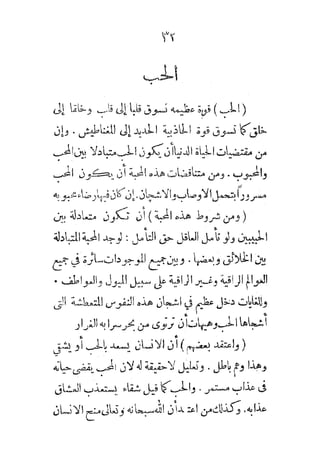 ٣٢
الحب
( الحب ) قوة عظيمه تسوق قلبا إلى قلب وخلقا إلى
خلق كما تسوق قوة الجاذبية الحديد إلى المغناطيس . وإن
من مقتضيات الحياة الدنيا أن يكون الحب متبادلا بين المحب
والمحبوب . ومن متناقضات هذه المحبة أن يكون المحب
مسرورا بتحمل الاوصاب والاشجان . إن كان فيها رضاء محبوبه
( ومن شروط هذه المحبة ) أن تكون متعادلة بين
الحبيبين ولو تأمل العاقل حق التأمل : لوجد المحبة المتبادلة
بين الخلائق وبعضها . وبين جميع الموجودات سائرة في جميع
العوالم الراقية وغير الراقية على سبيل الميول والعواطف .
وللغايات دخل عظيم في اشجان هذه النفوس المتعطشة التى
أشجاها الحب وهيهات أن ترتوى من بحر سرابه الغرار
( واعتقد بعضهم ) أن الانسان يسعد بالحب أو يشقي
وهذا وهم باطل . وتعليل لا حقيقة له لان المحب يقضى حياته
فى عذاب مستمر . والحب كما قيل شقاء يستعذب العشاق
عذابه . وكذلك من اعتقد أن الله سبحانه وتعالى منح الانسان